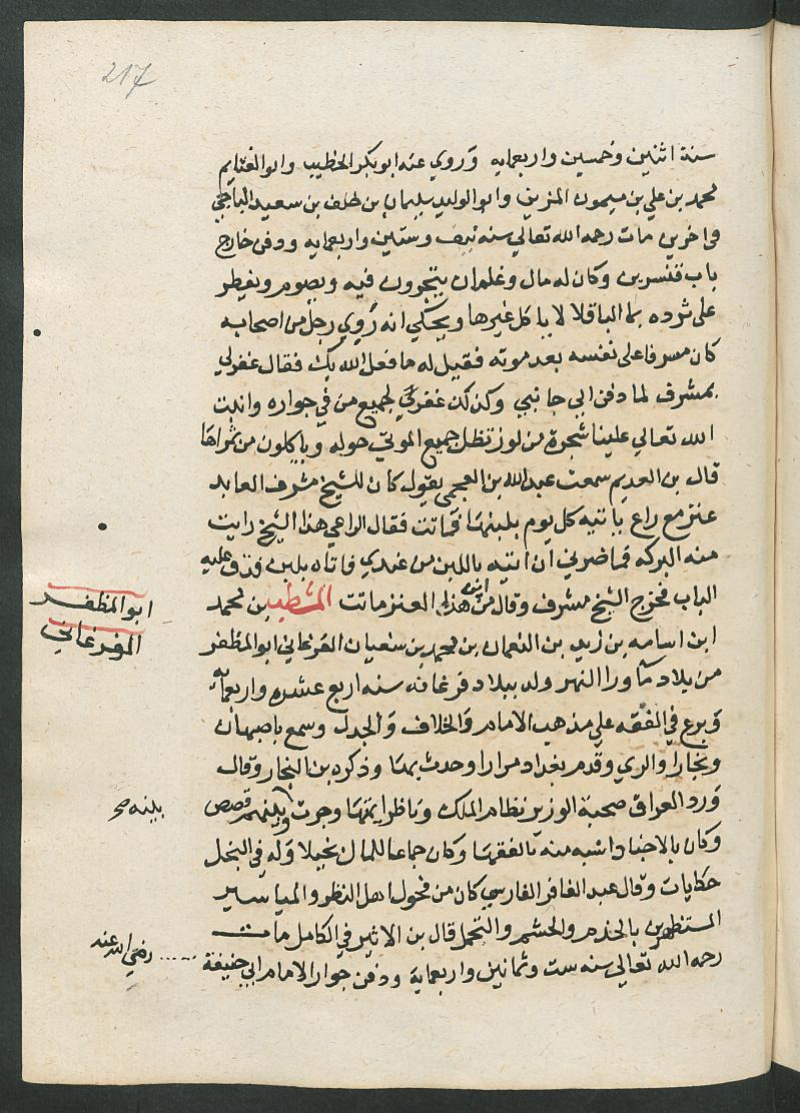 217
سنة اثنين وخمسين واربعمايه وروي عنه ابو بكر الخطيب وابو الغنايم
محمد بن علي بن ميمون المزين وابو الوليد سليمان بن خلف بن سعيد الباجي
في اخرين مات رحمه الله تعالي سنه نيف وستين واربعمايه ودفن خارج
باب قنسرين وكان له مال وغلمان يتجرون فيه ويصوم ويفطر
علي ثرده بما الباقلا لا ياكل غيرها ويحكي انه رؤي رجل من اصحابه
كان مسرفا علي نفسه بعد موته فقيل له ما فعل الله بك فقال غفر لي
بمشرف لما دفن الي جانبي وكذلك غفر لجميع من في جواره وانبت
الله تعالي علينا شجرة من لوز تظل جميع الموتي حوله وياكلون من ثمراها
قال بن العديم سمعت عبد الله بن العجمي يقول كان للشيخ مشرف العابد
عنز مع راع ياتيه كل يوم بلبنها فماتت فقال الراعي هذا الشيخ رايت
منه البركه فما ضرني ان اتيه باللبن من عندي فاتاه بلبن فدق عليه
الباب فخرج الشيخ مشرف وقال من اين هذا العنز ماتت المشطب بن محمد
ابن اسامه بن زيد بن النعمان بن محمد بن سفيان الفرغاني ابو المظفر
من بلاد ما ورا النهر ولد ببلاد فرغانه سنه اربع عشره واربعمايه
وبرع في الفقه علي مذهب الامام والخلاف والجدل وسمع باصبهان
وبخارا والري وقدم بغداد مرارا وحدث بها وذكره بن النجار وقال
ورد العراق صحبة الوزير نظام الملك وناظر ايمتها وجرت وبينهم قصص
وكان بالاجناد اشبه منه بالفقها وكان جماعا للمال بخيلا وله في البخل
حكايات وقال عبد الغافر الفارسي كان من فحول اهل النظر والمياسير
المستظهرين بالخدم والحشم والتجمل قال بن الاثير في الكامل مات
رحمه الله تعالي سنه ست وثمانين واربعماية ودفن جوار الامام ابي حنيفة
ابو المظفر
الفرغاني
بينه صح
رضي الله عنه